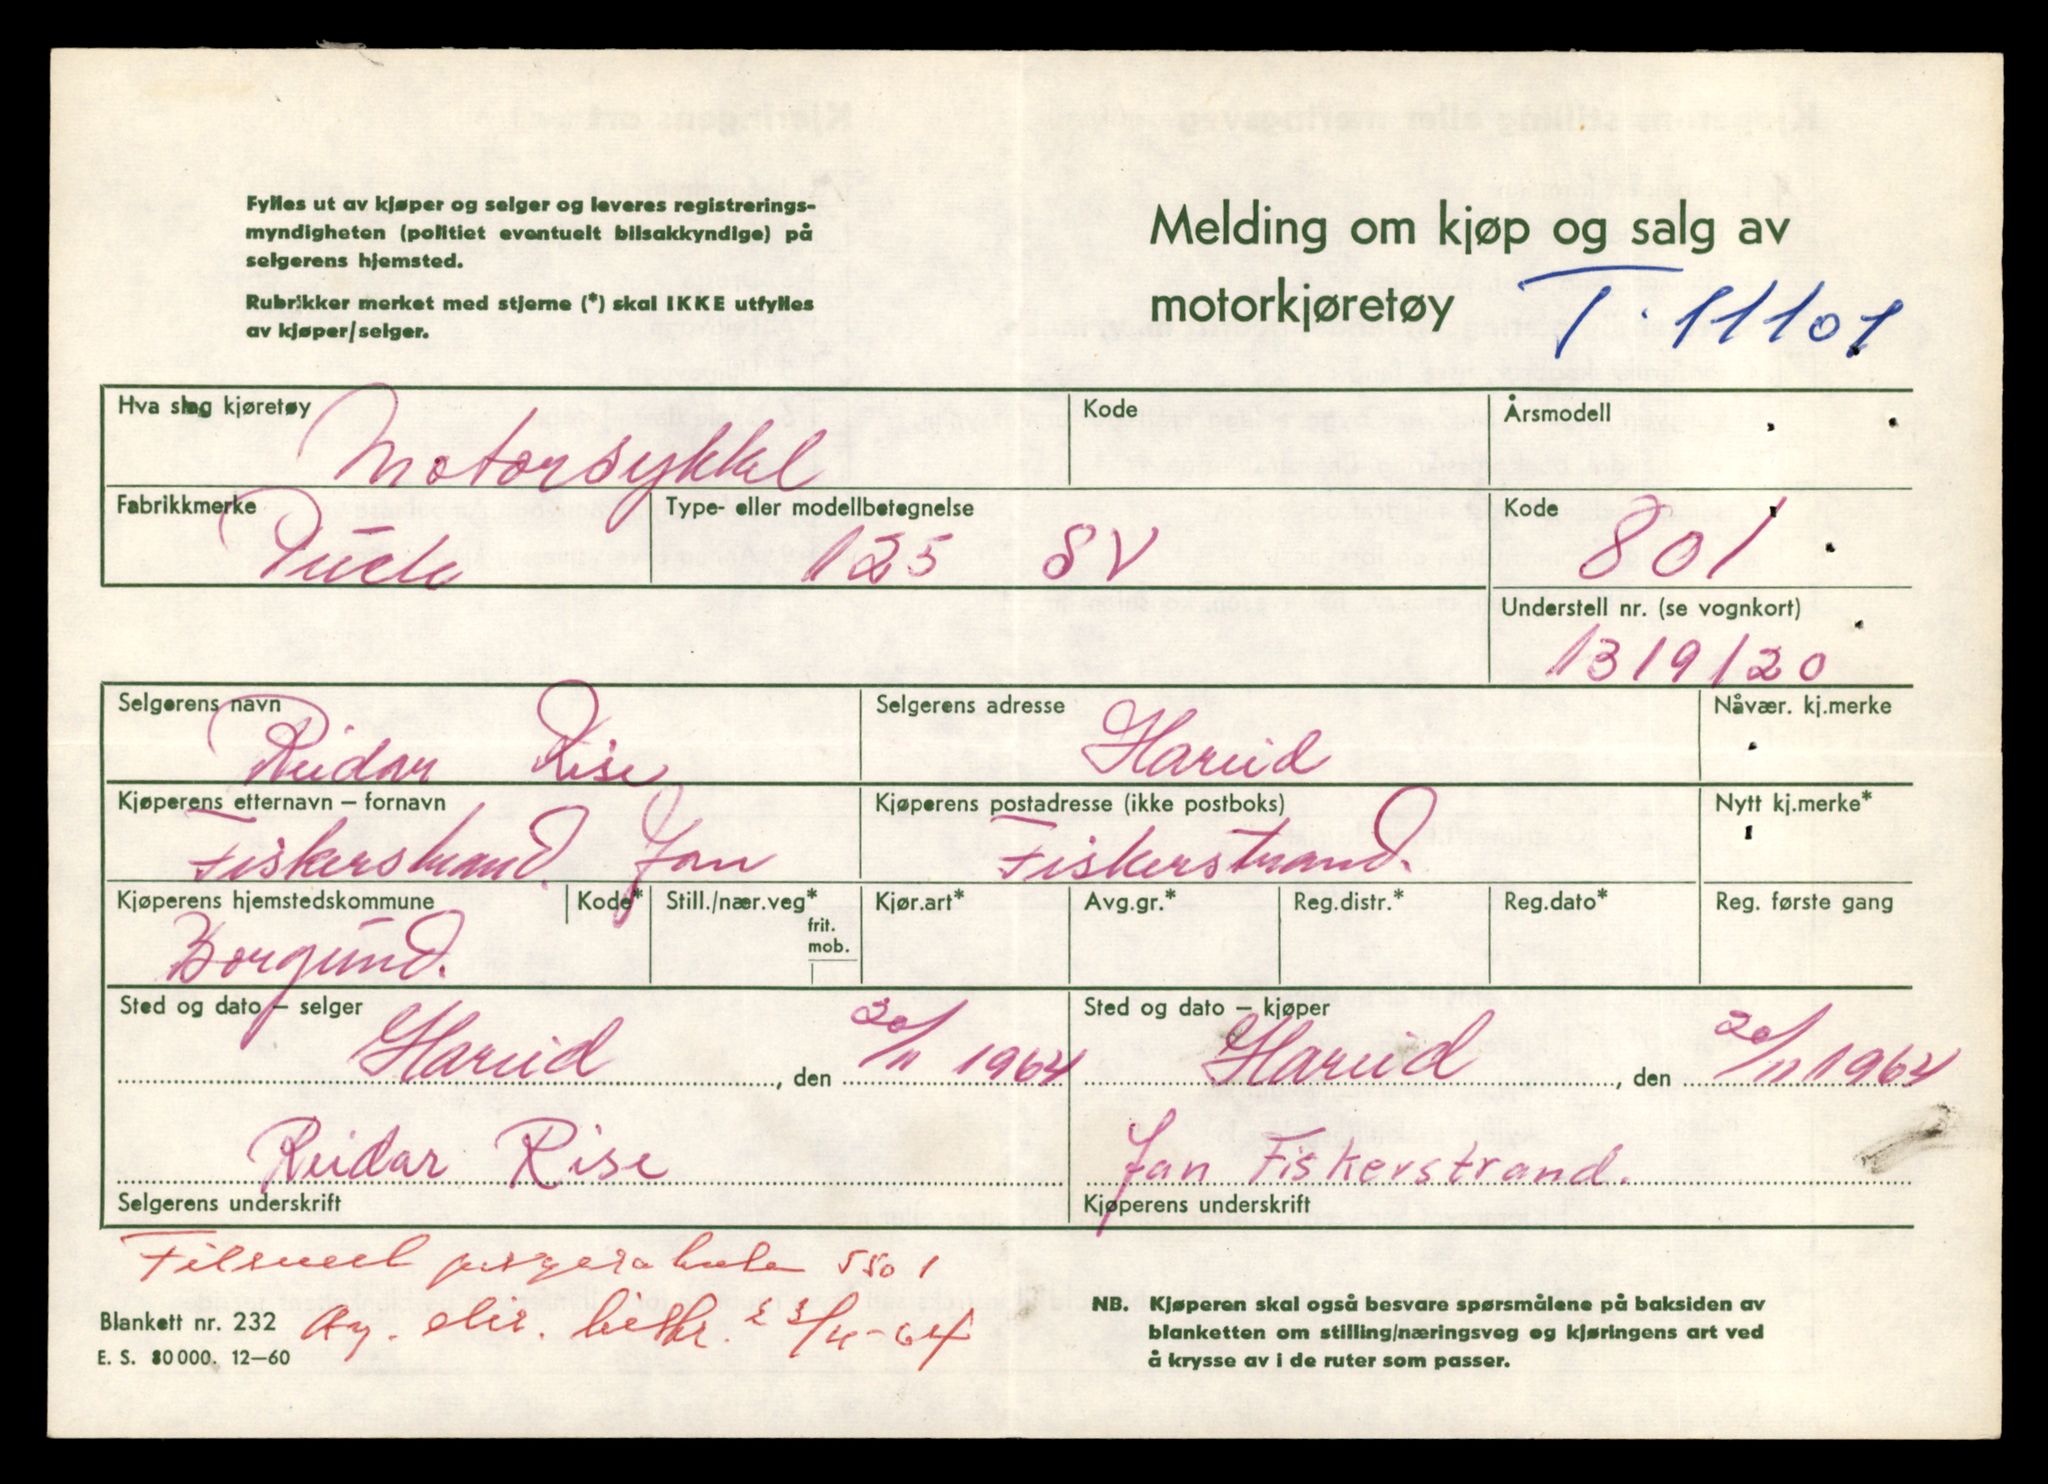 Fylles ut av kjøper og selger og leveres registrerings-
myndigheten (politiet eventuelt bilsakkyndige) på
selgerens hjemsted.
Rubrikker merket med stjerne (*) skal IKKE utfylles
av kjøper/selger.
Melding om kjøp og salg av
motorkjøretøy T-11101
Hva slag kjøretøy Kode Årsmodell
Motorsykkel
Fabrikkmerke Type- eller modellbetegnelse Kode
Puch 125 SV 801
Understell nr. (se vognkort)
1319120
Selgerens navn Selgerens adresse Nåvær. kj.merke
Reidar Rise Hareid
Kjøperens etternavn – fornavn Kjøperens postadresse (ikke postboks) Nytt kj.merke*
Fiskerstrand Jan Fiskerstrand.
Kjøperens hjemstedskommune Kode* Still./nær.veg* Kjør.art* Avg.gr.* Reg.distr.* Reg.dato* Reg. første gang
frit.
mob.
Borgund.
Sted og dato – selger Sted og dato – kjøper
Hareid, den 20/11 1964 Hareid, den 20/11 1964
Reidar Rise Jan Fiskerstrand.
Selgerens underskrift Kjøperens underskrift
5501
Blankett nr. 232
E. S. 80000. 12–60
NB. Kjøperen skal også besvare spørsmålene på baksiden av
blanketten om stilling/næringsveg og kjøringens art ved
å krysse av i de ruter som passer.